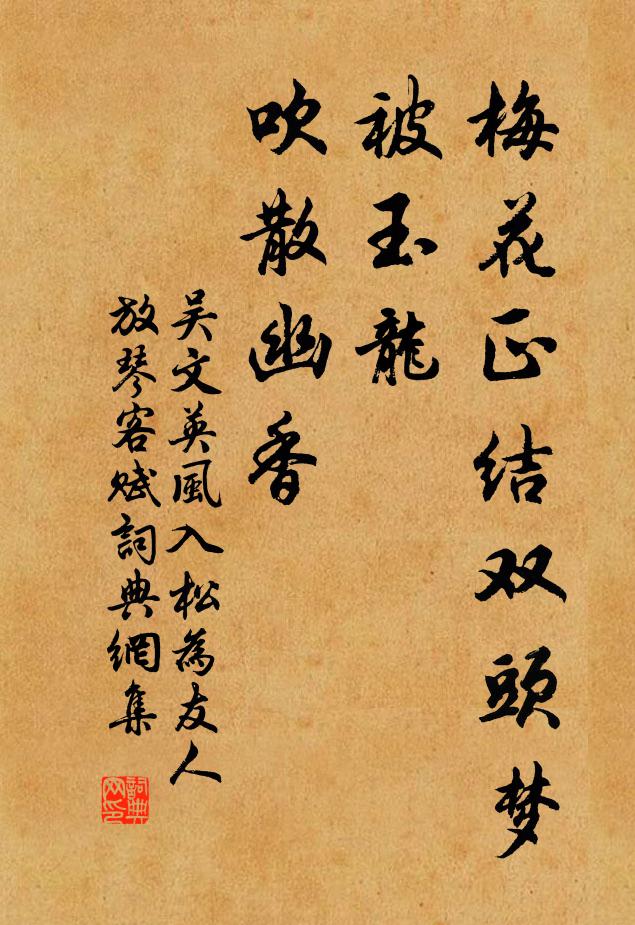 梅花正结双頭梦
被玉龍
吹散幽香
吴文英風入松為友人
放琴客赋詞典網集
詞典网印